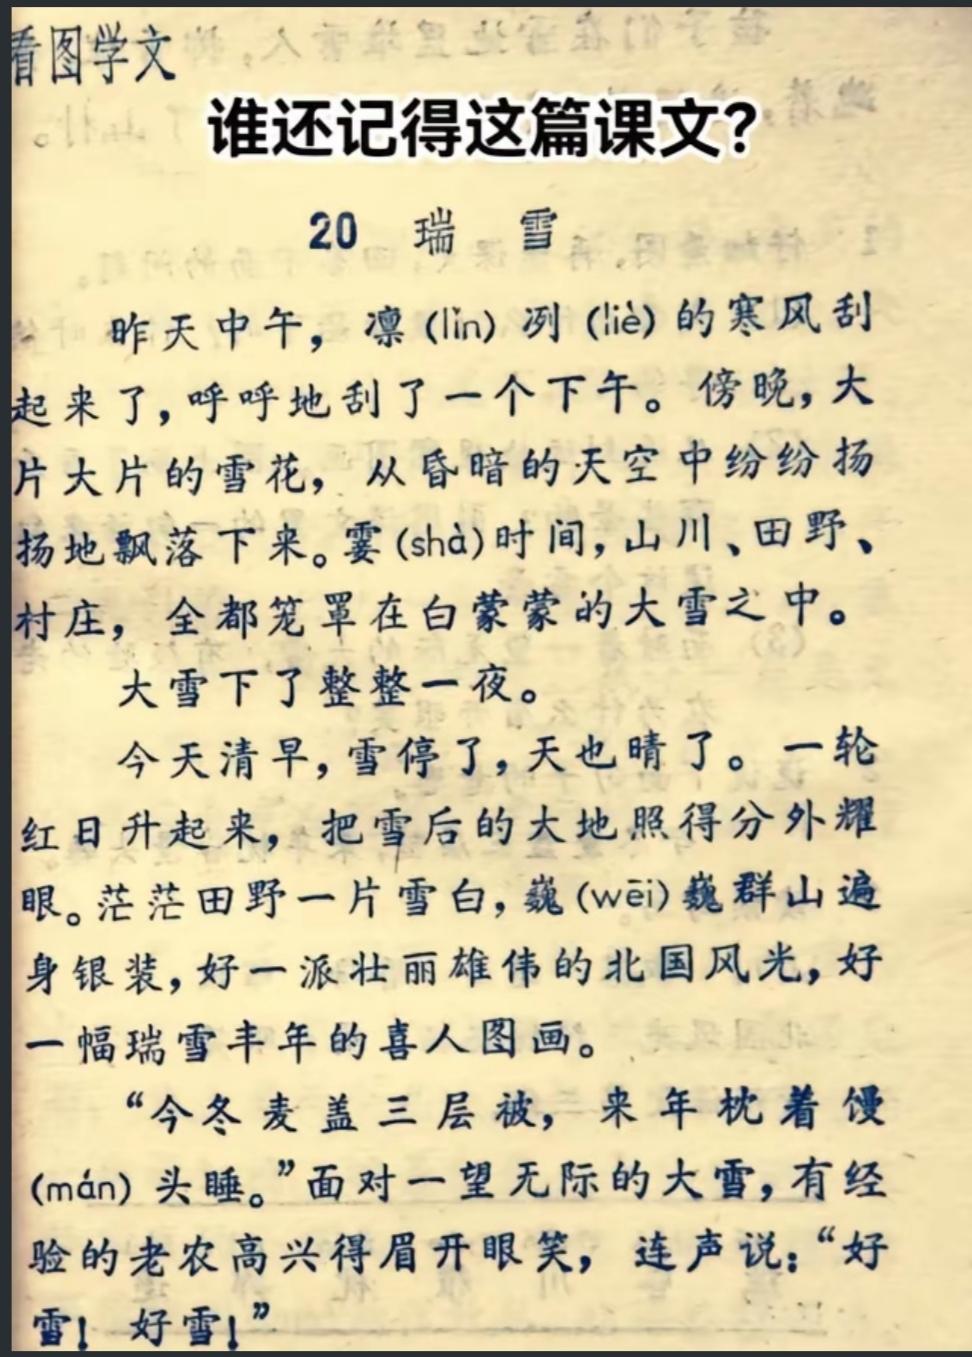 看图学文
谁还记得这篇课文?
20 瑞 雪
昨天中午，凛(lǐn)冽(liè)的寒风刮
起来了，呼呼地刮了一个下午。傍晚，大
片大片的雪花，从昏暗的天空中纷纷扬
扬地飘落下来。霎(shà)时间，山川、田野、
村庄，全都笼罩在白蒙蒙的大雪之中。
大雪下了整整一夜。
今天清早，雪停了，天也晴了。一轮
红日升起来，把雪后的大地照得分外耀
眼。茫茫田野一片雪白，巍(wēi)巍群山遍
身银装，好一派壮丽雄伟的北国风光，好
一幅瑞雪丰年的喜人图画。
“今冬麦盖三层被，来年枕着馒
(mán)头睡。”面对一望无际的大雪，有经
验的老农高兴得眉开眼笑，连声说：“好
雪！好雪！”